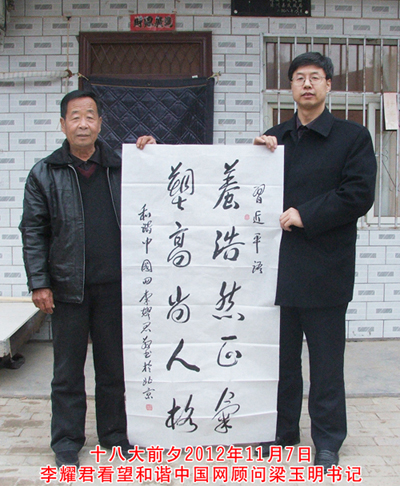 習近平语
養浩然正氣
塑高尚人格
和谐中国网李耀君敬书於北京
十八大前夕2012年11月7日
李耀君看望和谐中国网顾问梁玉明书记